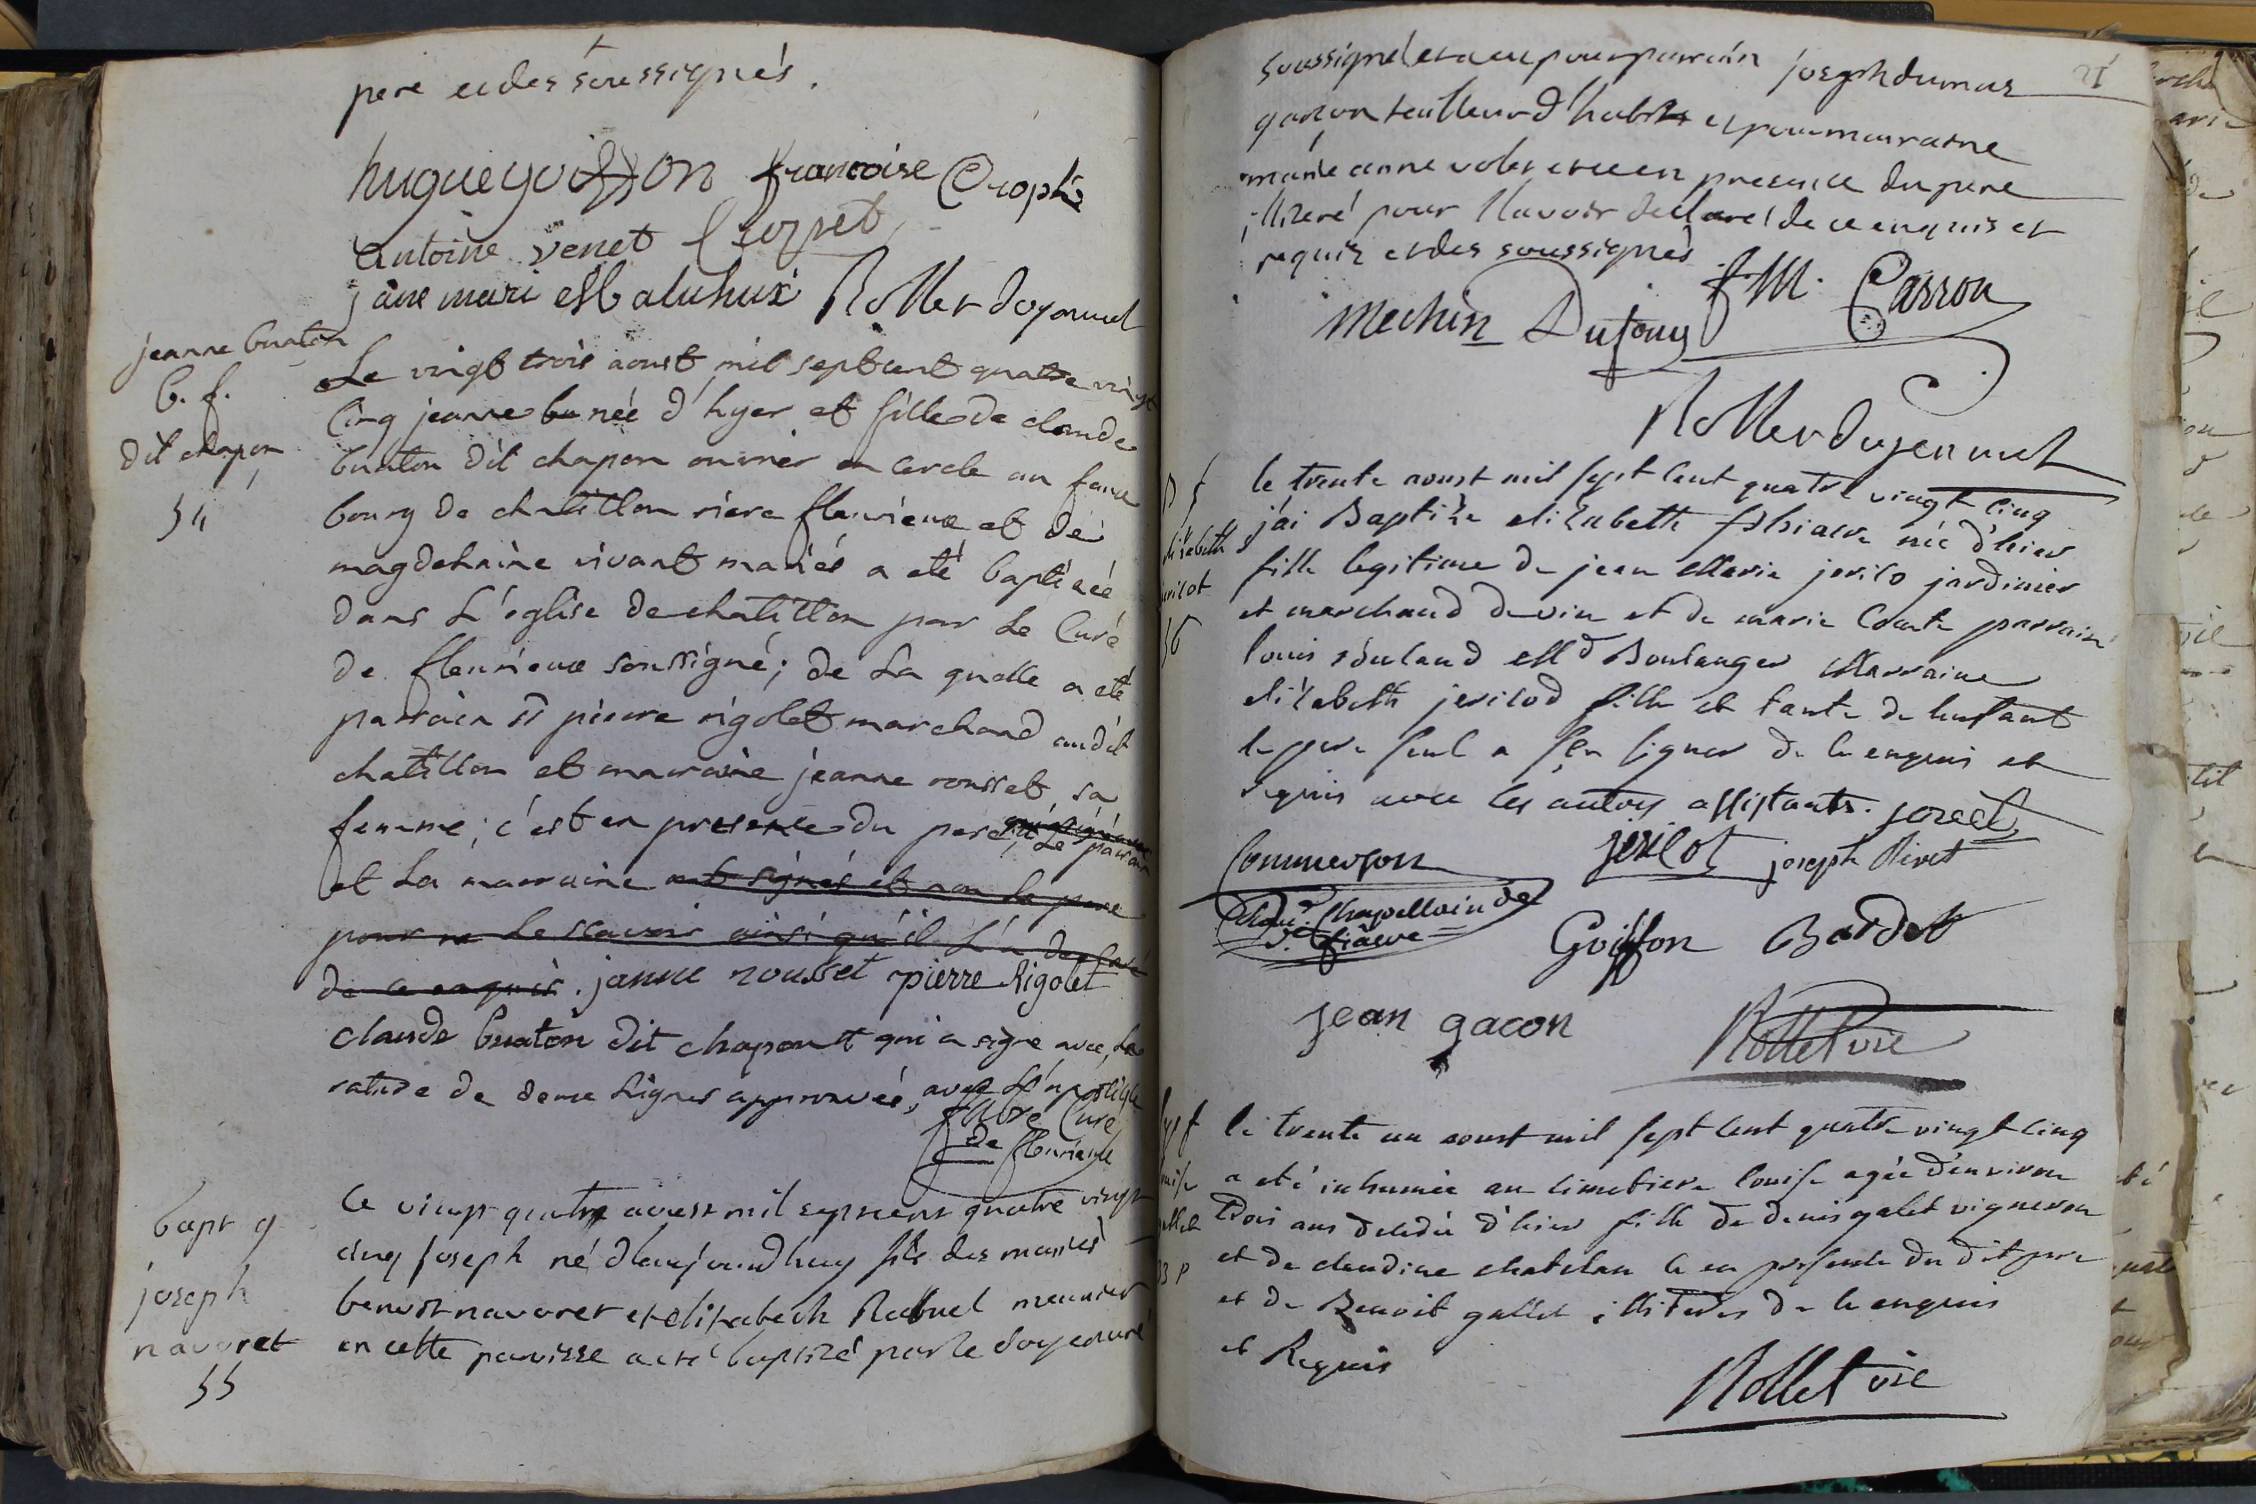 pere et des soussignés.
hugue goiffon francoise Crophe
antoine venet
jane mari Rollet doyen curé
jeanne buaton
b. f.
dit chapon
54
Le vingt trois aoust mil septcent quatre vingt
cinq jeanne née d'hyer et fille de claude
buaton dit chapon ouvrier en cercle au faux
bourg de chatillon riere fleurieux et de
magdelaine vivant mariés a eté baptisée
dans L'eglise de chatillon par Le Curé
de fleurieux soussigné; de La quelle a eté
parrain sr pierre rigolet marchand audit
chatillon et marraine jeanne rousset sa
femme; c'est en presence du pere, Le parrain
et La marraine ont signés et non Le pere
pour ne Le scavoir ainsi qu'il L'a declaré
de ce enquis. janne rousset pierre Rigolet
claude buaton dit chapont qui a signe avec La
rature de deux Lignes approuvée, avec L'apostille
fabre Curé
de fleurieux
bapt g
joseph
navoret
55
Le vingt quatre aoust mil septcent quatre vingt
cinq joseph né d'aujourdhuy fils des mariés
benoit navoret et elisabeth Rabuel meunier
en cette paroisse a eté baptisé par le doyen curé
soussigné et a eu pour parrain joseph dumas
garçon tailleur d'habits et pour marraine
marie anne volet et ce en presence du pere
illiteré pour l'avoir declaré de ce enquis et
requis et des soussignés
Mechin Dufour f M. Carron
Rollet doyen curé
elizabeth
jerilot
56
le trente aoust mil sept cent quatre vingt cinq
j'ai Baptisé elizabeth fhiacre née d'hier
fille legitime de jean Marie jerico jardinier
et marchand de vin et de marie Comte parrain
louis réuland Md Boulanger Marraine
elizabeth jericod fille et tante de lenfant
le pere seul a sçu signer de ce enquis et
requis avec les autres assistants.
Commerson jerilot joseph Rivet
chapellain de
st. fiacre
Goiffon Bardet
jean gacon Rollet vic
le trente un aoust mil sept cent quatre vingt cinq
a eté inhumée au cimetiere louise agée d'environ
trois ans decedée d'hier fille de denis galet vigneron
et de claudine chatelan ce en presence du dit pere
et de Benoit gallet illiteres de ce enquis
et Requis
Rollet vic